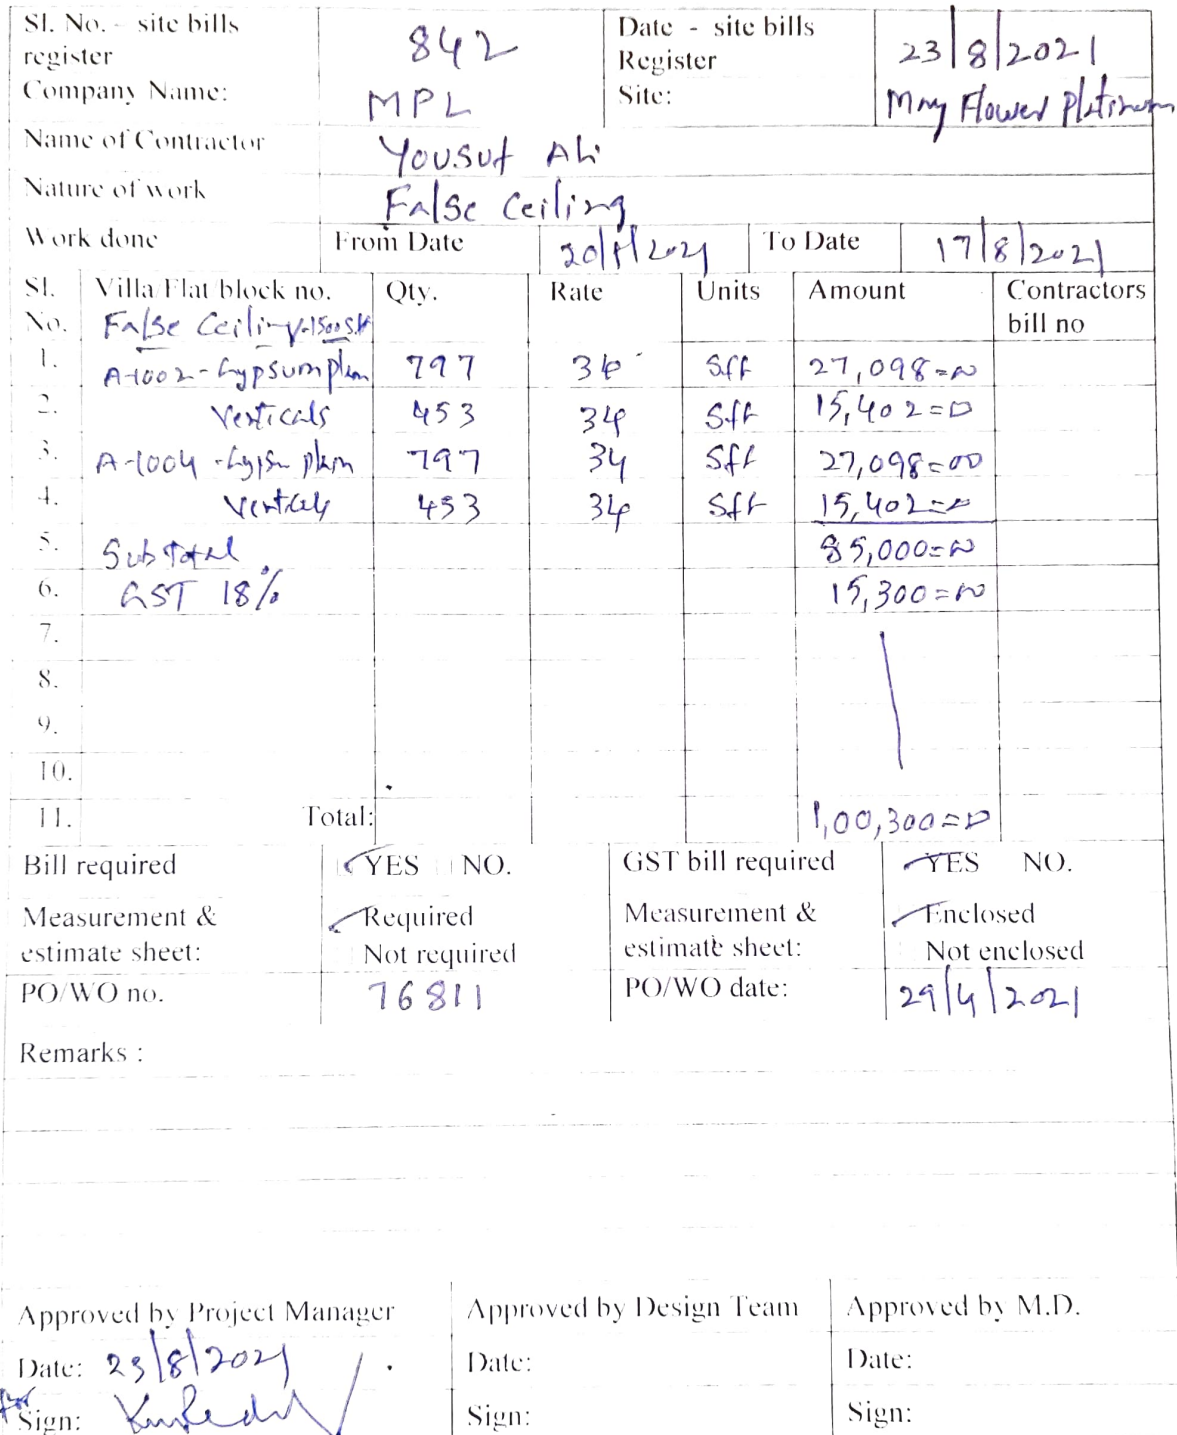 Sl. No. – site bills register 842 Date - site bills Register 23/8/2021
Company Name: MPL Site: May Flower Platinum
Name of Contractor Yousuf Ali
Nature of work False Ceiling
Work done From Date 20/ /2021 To Date 17/8/2021
Sl. No. Villa/Flat/block no. Qty. Rate Units Amount Contractors bill no
False Ceiling
1. A-1002 - Gypsum plain 797 34 Sft 27,098=00
2. Verticals 453 34 Sft 15,402=00
3. A-1004 - Gypsm plain 797 34 Sft 27,098=00
4. Verticals 453 34 Sft 15,402=00
5. Sub Total 85,000=00
6. GST 18% 15,300=00
7.
8.
9.
10.
11. Total: 1,00,300=00
Bill required YES NO. GST bill required YES NO.
Measurement & estimate sheet: Required Not required Measurement & estimate sheet: Enclosed Not enclosed
PO/WO no. 76811 PO/WO date: 29/4/2021
Remarks :
Approved by Project Manager Approved by Design Team Approved by M.D.
Date: 23/8/2021 Date: Date:
for Sign: Sign: Sign: